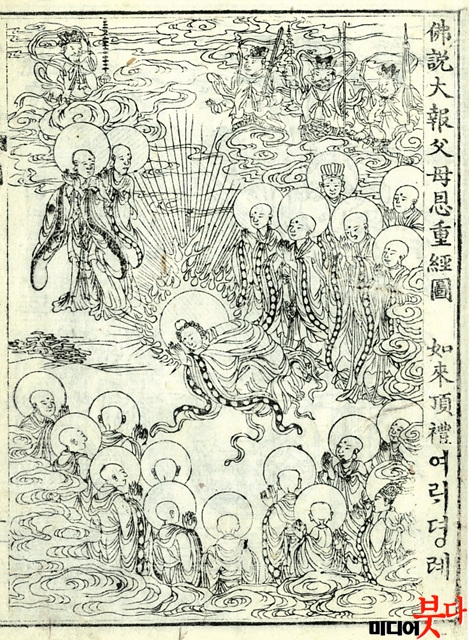 佛說大報父母恩重經圖 如來頂禮 여ᄅᆡ뎡례
미디어붓다